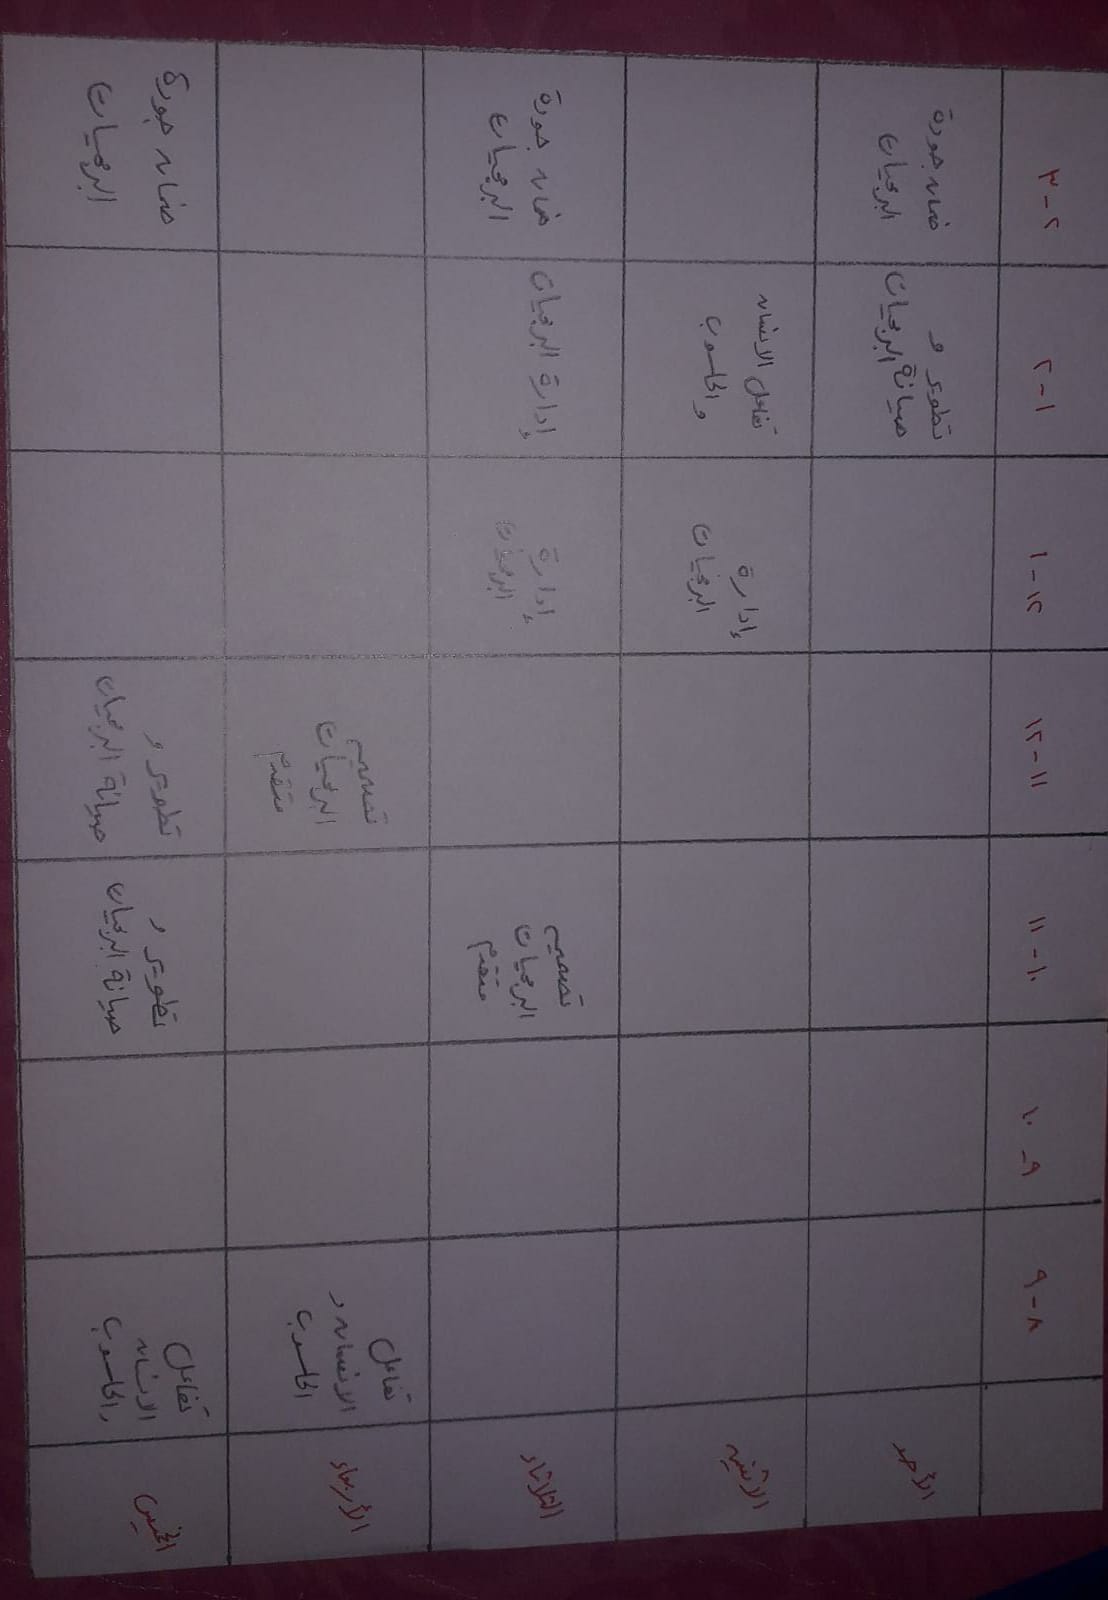 ٨-٩
٩-١٠
١٠-١١
١١-١٢
١٢-١
١-٢
٢-٣
الأحد
تطوير و
صيانة البرمجيات
ضمان جودة
البرمجيات
الاثنين
إدارة
البرمجيات
تفاعل الانسان
والحاسوب
الثلاثاء
تصميم
البرمجيات
متقدم
إدارة
البرمجيات
إدارة البرمجيات
ضمان جودة
البرمجيات
الأربعاء
تفاعل
الانسان و
الحاسوب
تصميم
البرمجيات
متقدم
الخميس
تفاعل
الانسان
والحاسوب
تطوير و
صيانة البرمجيات
تطوير و
صيانة البرمجيات
ضمان جودة
البرمجيات